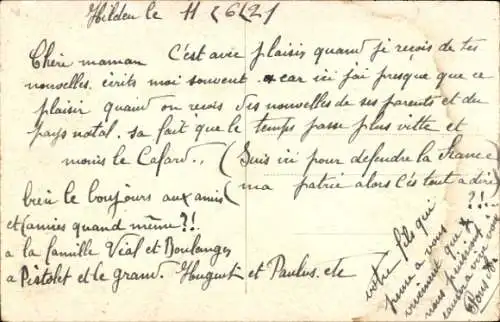 Hilden le 11 /6/21
Chère maman C'est avec plaisir quand je reçois de tes
nouvelles. écrits moi souvent. car ici j'ai presque que ce
plaisir quand on reçois des nouvelles de ses parents et du
pays natal. sa fait que le temps passe plus vitte et
moins le Cafard.. (Suis ici pour defendre la France
ma patrie alors c'és tout a dire)
?!!..
bien le boujours aux amis
et (amies quand même?!!
a la famille Vial et Boulanger
a Pistolet et le grand. Huguet et Paulus. etc
votre fils qui
pense a vous
vivement que
nous puissions